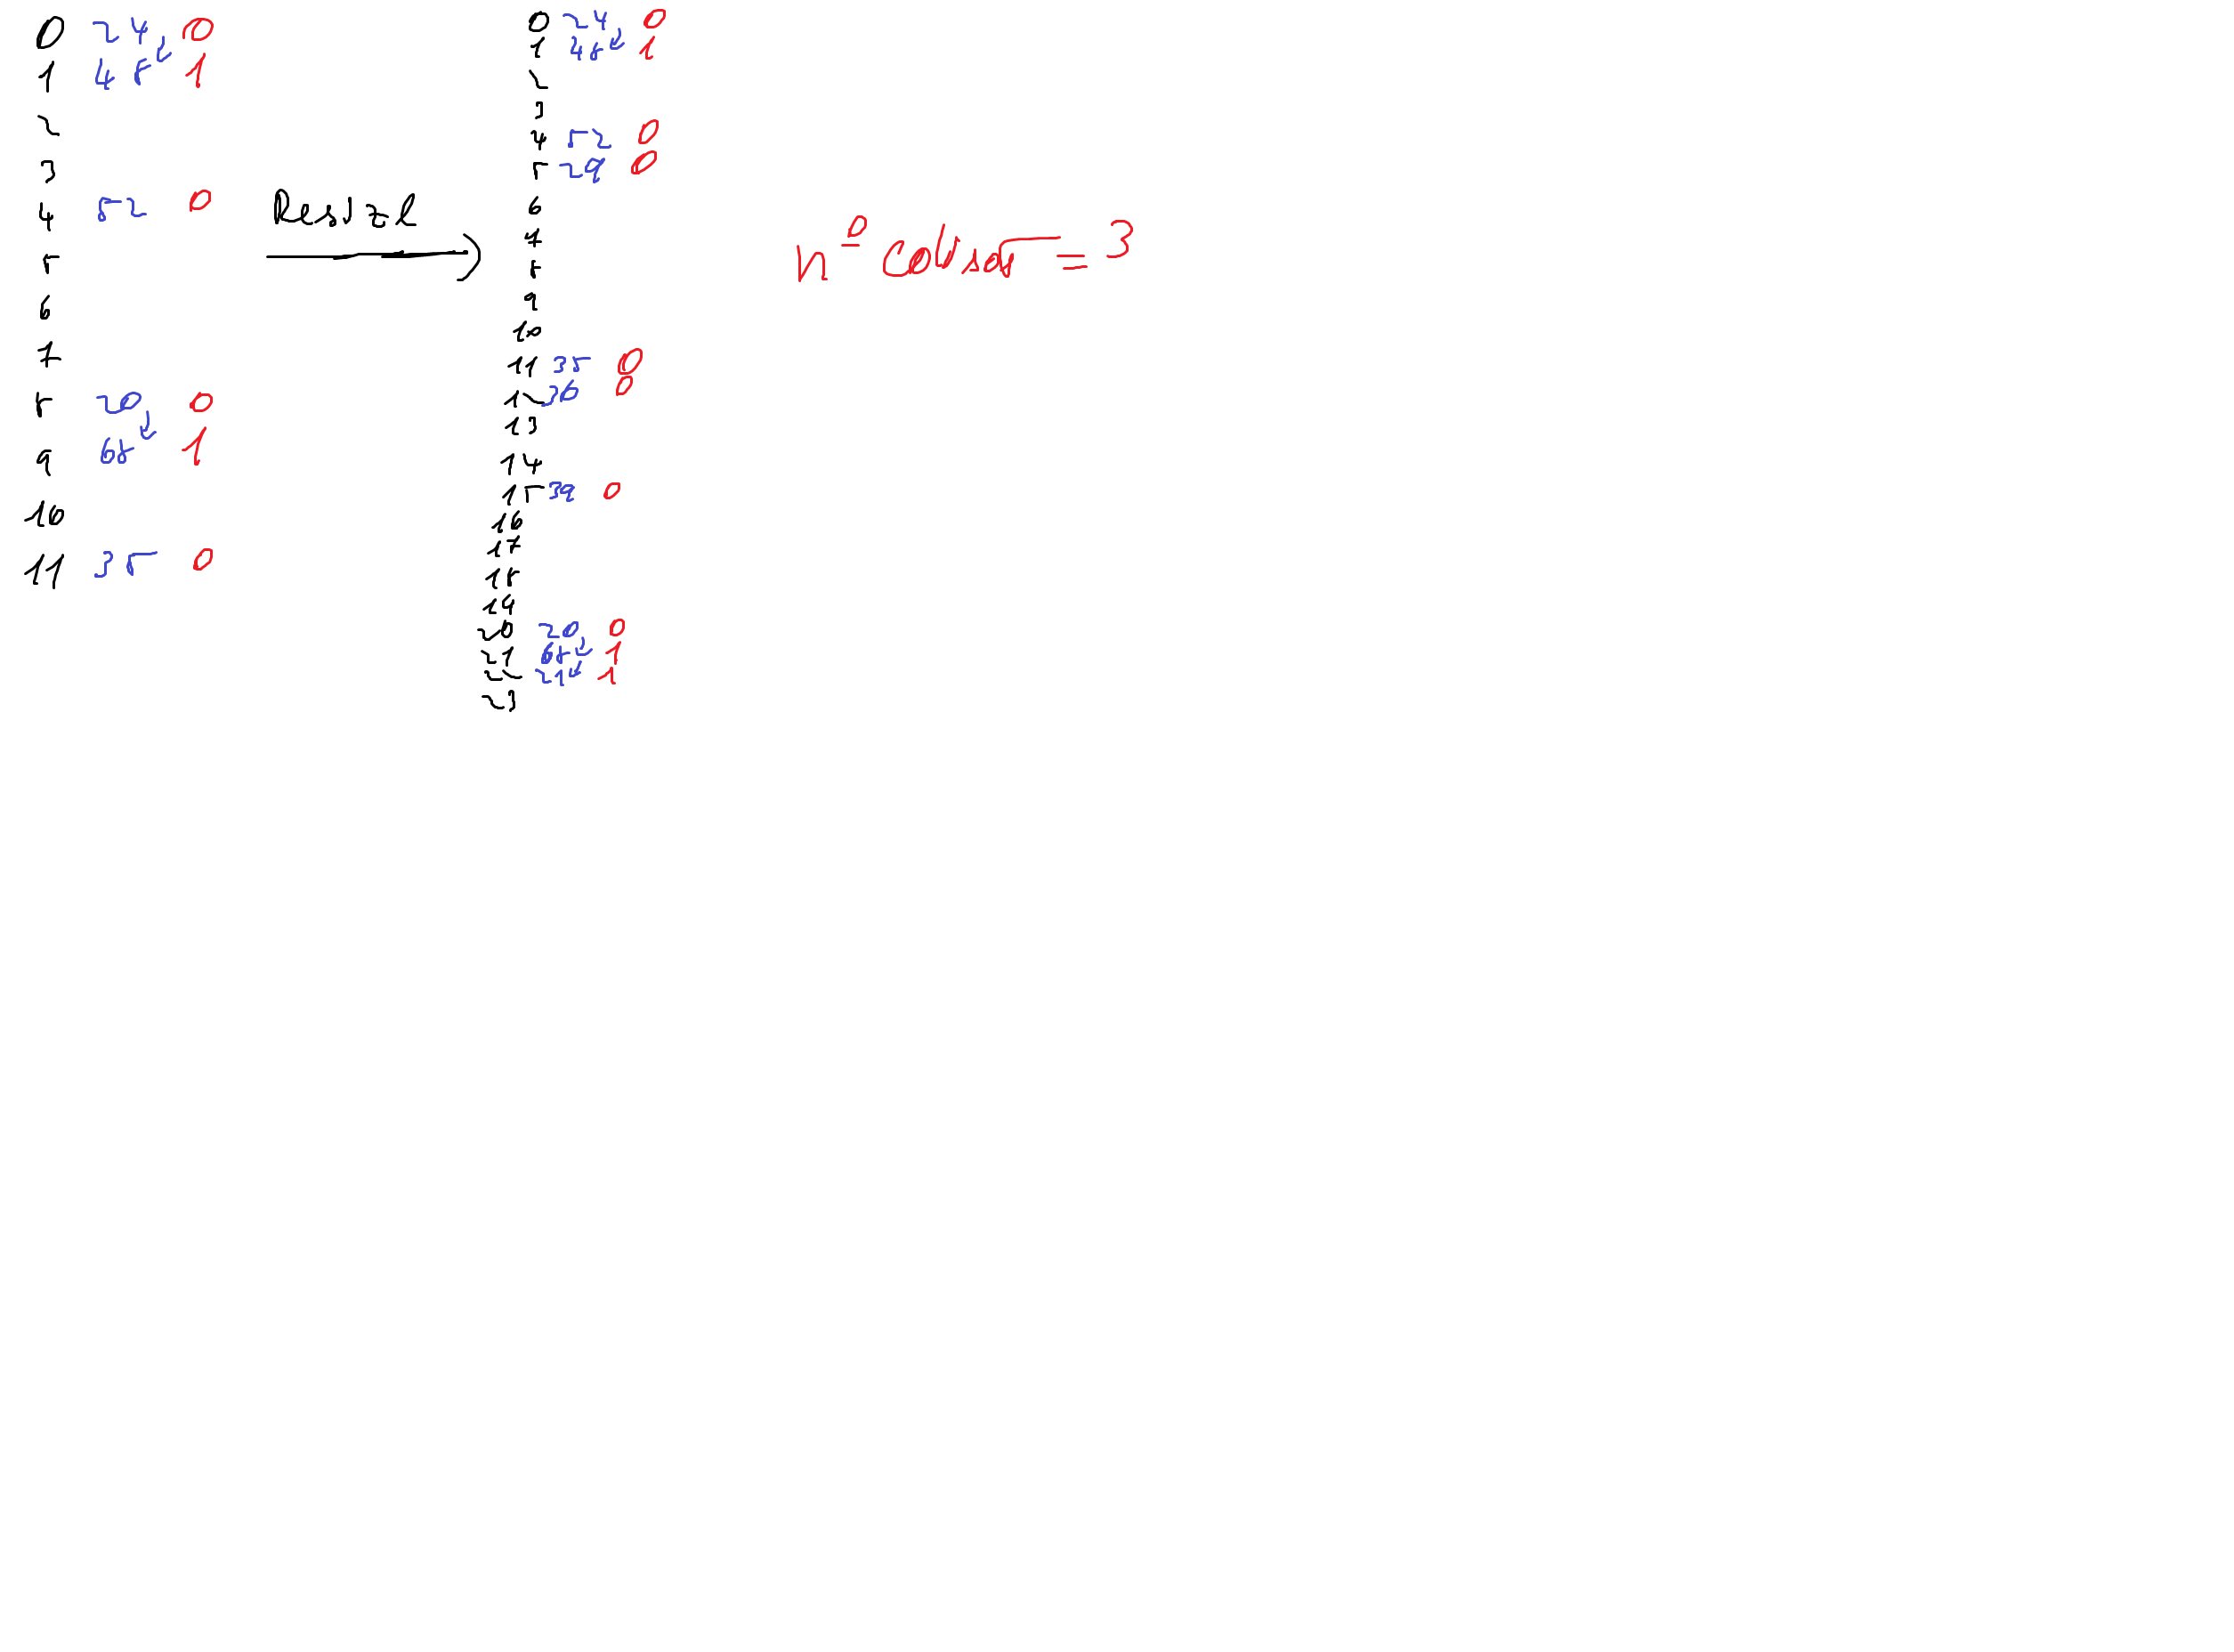 0 24 0
1 48 1
2
3
4 52 0
5
6
7
8 20 0
9 68 1
10
11 35 0
0 24 0
1 48 1
2
3
4 52 0
5 29 0
6
7
8
9
10
11 35 0
12 36 0
13
14
15 39 0
16
17
18
19
20 20 0
21 68 1
22 21 1
23
nº = 3